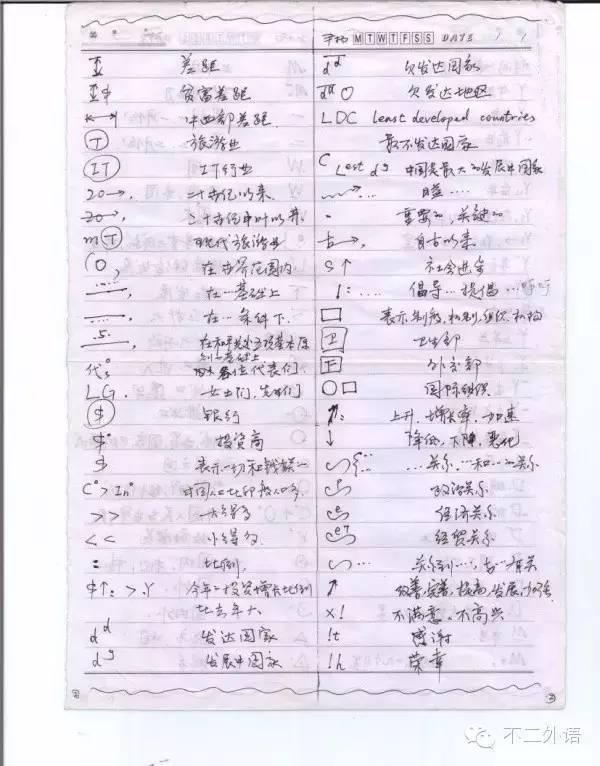 MTWTFSS DATE / /
差距
$ 贫富差距
东西部差距
T 旅游业
IT IT行业
20→, 二十世纪以来
20→, 二十世纪中叶以来
m T 现代旅游业
(O, 在世界范围内
在…基础上
在…条件下
.5. 在和平共处五项基本原
则的基础上
代° 各位代表们
LG. 女士们,先生们
$ 银行
$° 投资商
$ 表示一切和钱族一
C°>In° 中国人口比印度人口多
>> 大得多
<< 小得多
: 比例
$↑: >.Y 今年的投资增长比例
比去年大
d^d 发达国家
d^g 发展中国家
欠发达国家
欠发达地区
LDC least developed countries
最不发达国家
C Lest dg 中国是最大的发展中国家
…. 随….
重要的,关键的
古→, 自古以来
S↑ 社会进步
1:…. 倡导…提倡…呼吁
□ 表示制度,机制,组织,机构
卫 卫生部
F 外交部
○□ 国际组织
上升,增长率,加速
↓ 降低,下降,恶化
…关系,…和…的关系
P 政治关系
e 经济关系
经贸关系
… 关系到…,与…有关
↗ 改善,完善,提高,发展,加强
×! 不满意,不高兴
!t 感谢
!h 荣幸
②
③
不二外语